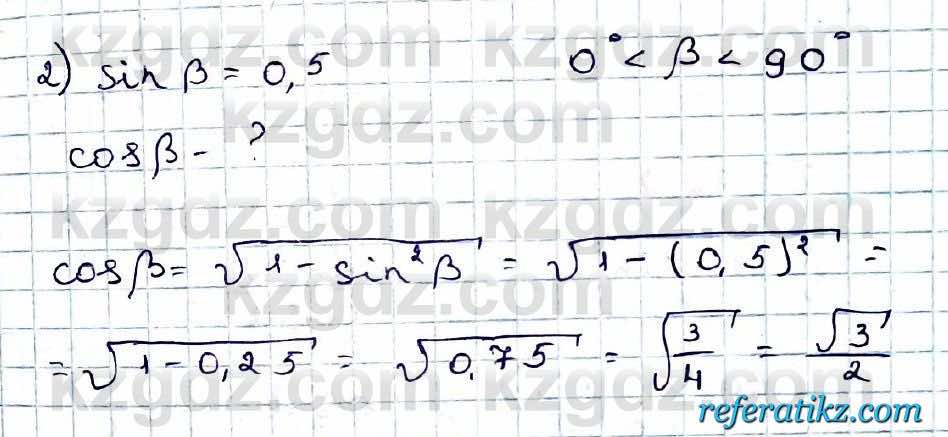 kzgdz.com kzgdz.com
2) sin β = 0,5 0° < β < 90°
kzgdz.com
cos β - ?
kzgdz.com kzgdz.com
cos β = √(1 - sin²β) = √(1 - (0,5)²) =
kzgdz.com
= √(1 - 0,25) = √0,75 = √(3/4) = √3/2
kzgdz.com kzgdz.com
referatikz.com